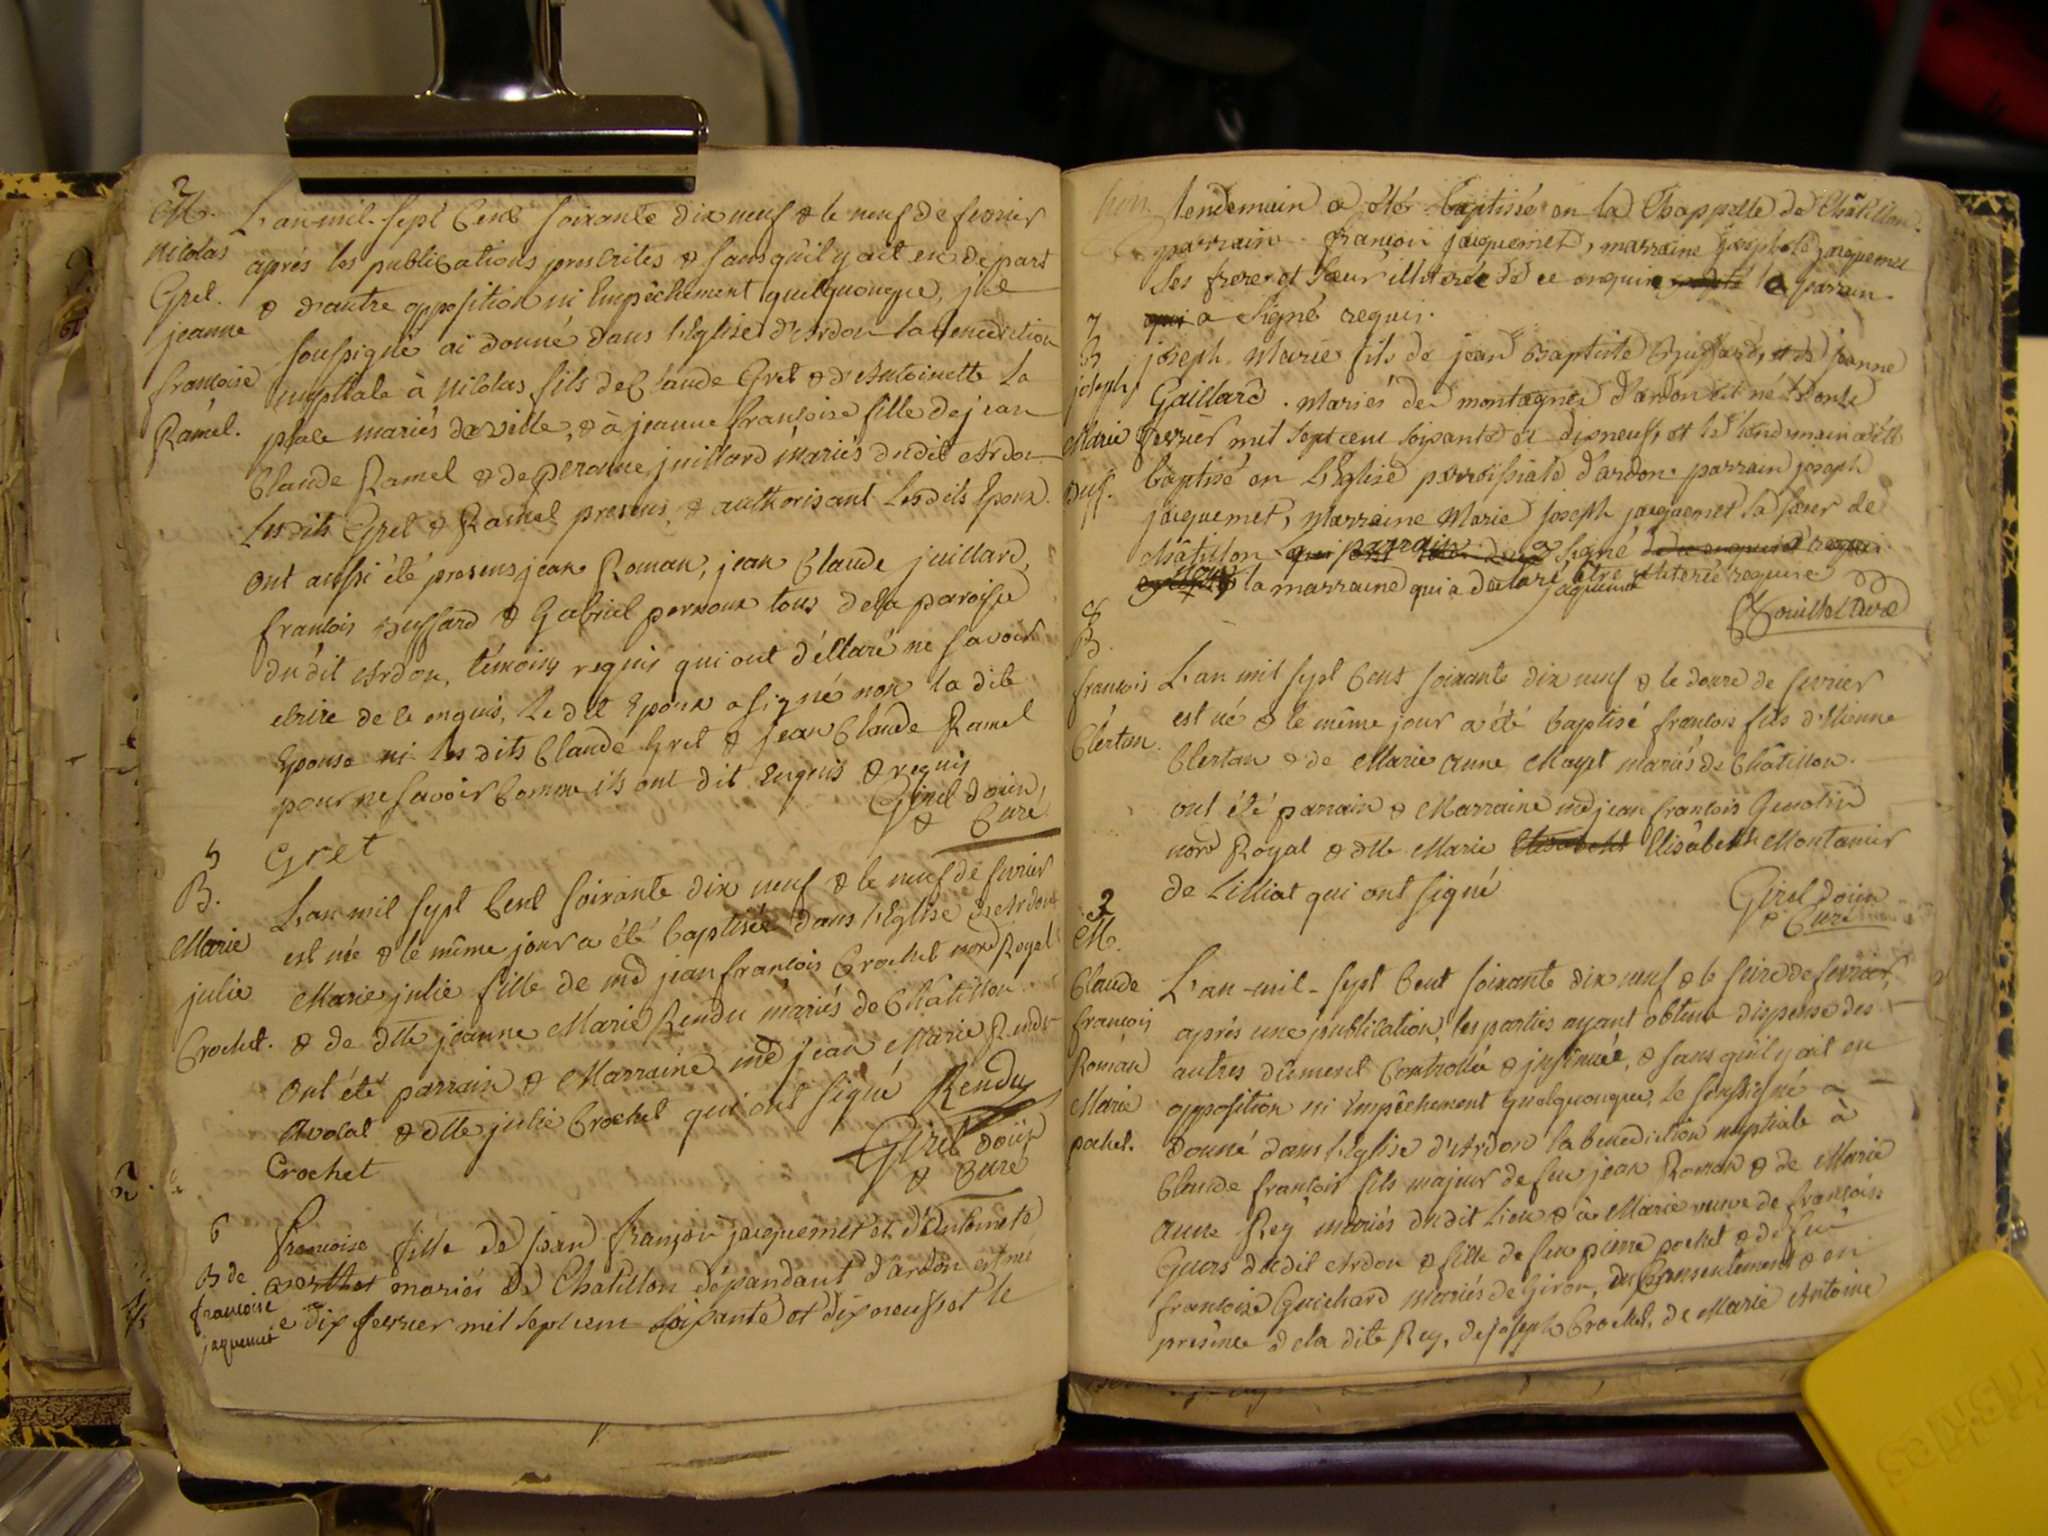 2
M.
Nicolas
Gret.
jeanne
francoise
Ramel.
L'an mil sept Cent soixante dix neuf & le neuf de fevrier
aprés les publications prescrites & sans qu'il y ait eu de part
& d'autre opposition ni Empêchement quelquonque, je
soussigné ai donné dans l'Eglise d'Ardon la benediction
nuptiale à Nicolas fils de Claude Gret & d'Antoinette La
place mariés de ville, & à jeanne francoise fille de jean
Claude Ramel & de peronne juillard mariés dudit Ardon
Lesdits Gret & Ramel presens & authorisant Lesdits Epoux.
ont aussi été presens jean Roman, jean Claude juillard,
francois & Gabriel tous de la paroisse
du dit Ardon, témoins requis qui ont déclaré ne savoir
ecrire de ce enquis, Le dit Epoux a signé non la dite
Epouse ni les dits Claude Gret & jean Claude Ramel
pour ne savoir comme ils ont dit Enquis & requis
Girel doüin
& Curé
Gret
5
B.
Marie
julie
Crochet.
L'an mil sept Cent soixante dix neuf & le neuf de fevrier
est née & le même jour a été baptisée dans l'Eglise d'Ardon
Marie julie fille de md jean francois Crochet nore Royal
& de dlle jeanne Marie Rendu mariés de Châtillon.
Ont été parrain & Marraine md jean Marie Rendu
Avocat & dlle julie Crochet qui ont signé Rendu
Crochet
Girel doüin
& Curé
6
B de
francoise
jaquemet
francoise fille de jean françois jacquemet et d'Antoinete
mariés de Chatillon dépandant d'ardon est né
e dix fevrier mil sept cent soixante et dix neuf et le
lendemain a été baptisé en la Chappelle de Châtillon
parrain françois jacquemet, marraine josephete jacquemet
ses frere et sœur illiterée de ce enquire le parrain
qui a signé requis.
7
B
joseph
Marie
joseph Marie fils de jean Baptiste et de jeanne
Gaillard. mariés de montagnes d'ardon est né le onze
fevrier mil sept cent soixante et dix neuf, et le lendemain a été
baptisé en l'Eglise parroissiale d'ardon. parrain joseph
jacquemet, Marraine Marie joseph jacquemet la sœur de
châtillon parrain signé
non la marraine qui a declaré être illiterée require
jaquemet
8
B.
francois
Clertan.
L'an mil sept Cent soixante dix neuf & le douze de fevrier
est né & le même jour a été baptisé francois fils d'Etienne
Clertan & de Marie Anne Mayet mariés de Châtillon.
ont été parrain & Marraine md jean francois Genolin
nore Royal & dlle Marie Elisabeht Elisabeth Montanier
de Lilliat qui ont signé
Girel doüin
& Curé
2
M.
Claude
francois
Roman
Marie
pochet.
L'an mil sept Cent soixante dix neuf & le seize de fevrier,
aprés une publication, les parties ayant obtenu dispense des
autres dûment Controllée & insinuée, & sans qu'il y ait eu
opposition ni Empêchement quelquonque, le soussigné a
donné dans l'Eglise d'Ardon la benediction nuptiale à
Claude francois fils majeur de feu jean Roman & de Marie
Anne Rey mariés dudit Lieu & à Marie veuve de francois
dudit Ardon & fille de feu pierre pochet & de feu
francoise Guichard Mariés de Giron, du Consentement & en
presence de la dite Rey, de joseph Crochet, de Marie Antoine